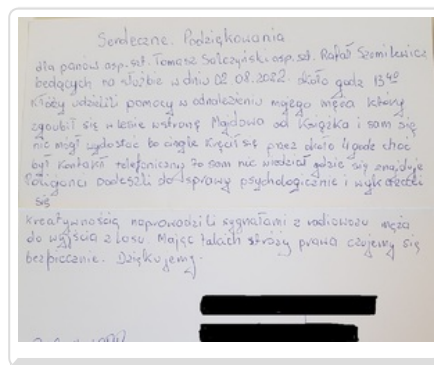 Serdeczne. Podziękowania
dla panów asp. szt. Tomasz Salczyński asp. szt. Rafał Szmilewicz
będących na służbie w dniu 02 08.2022. około godz 13 40
Którzy udzielili pomocy w odnalezieniu mojego męża który
zgubił się w lesie w stronę Majdowa od Książka i sam się
nie mógł wydostać bo ciągle kręcił się przez około 4 godz choć
był kontakt telefoniczny to sam nie wiedział gdzie się znajduje
Policjanci podeszli do sprawy psychologicznie i wykazali
się
kreatywnością naprowadzili sygnałami z radiowozu męża
do wyjścia z lasu. Mając takich stróży prawa czujemy się
bezpiecznie. Dziękujemy.